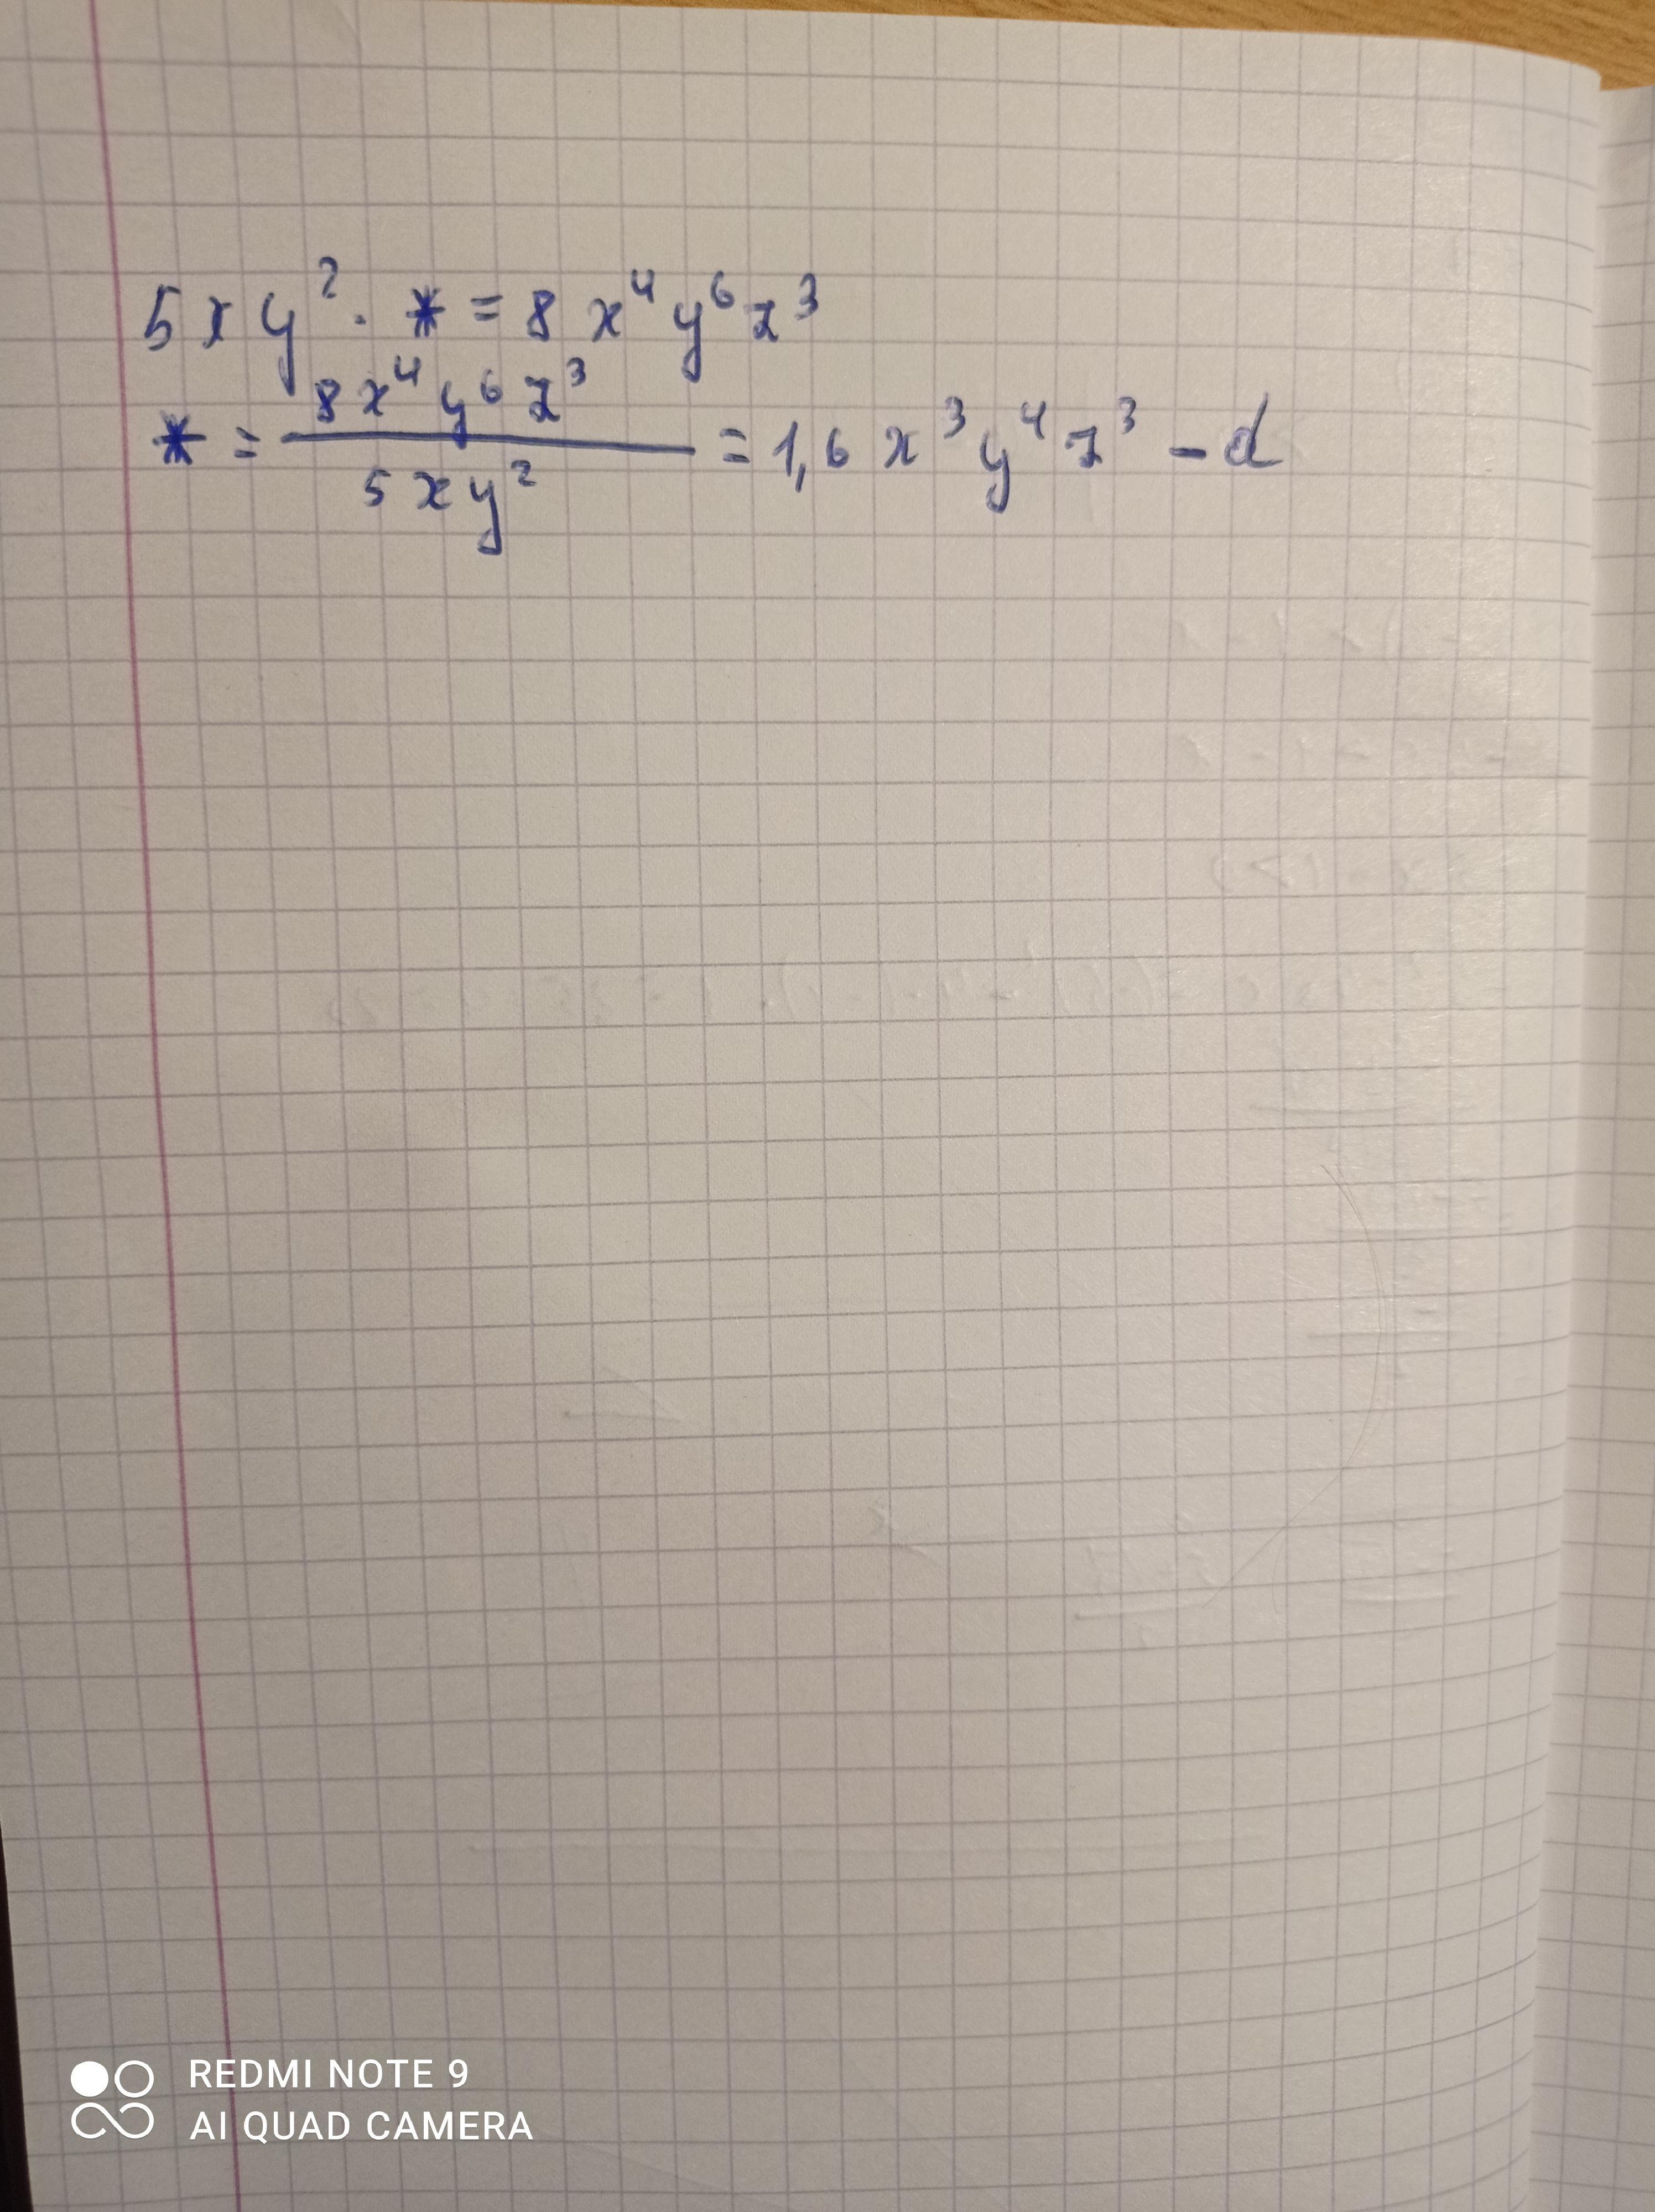 5xy² · * = 8x⁴y⁶z³
* = 8x⁴y⁶z³ / 5xy² = 1,6x³y⁴z³ – d
REDMI NOTE 9
AI QUAD CAMERA